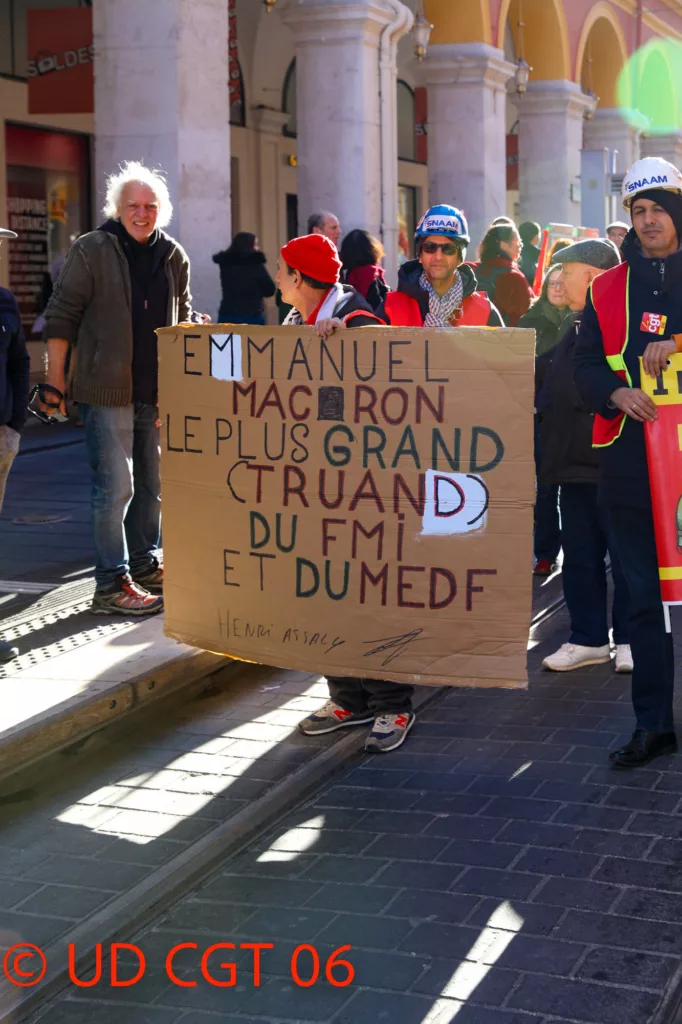 SOLDES
SNAAM
SNAAM
cgt
EMMANUEL
MAC RON
LE PLUS GRAND
(TRUAND)
DU FMi
ET DU MEDF
HENRi ASSALY
© UD CGT 06